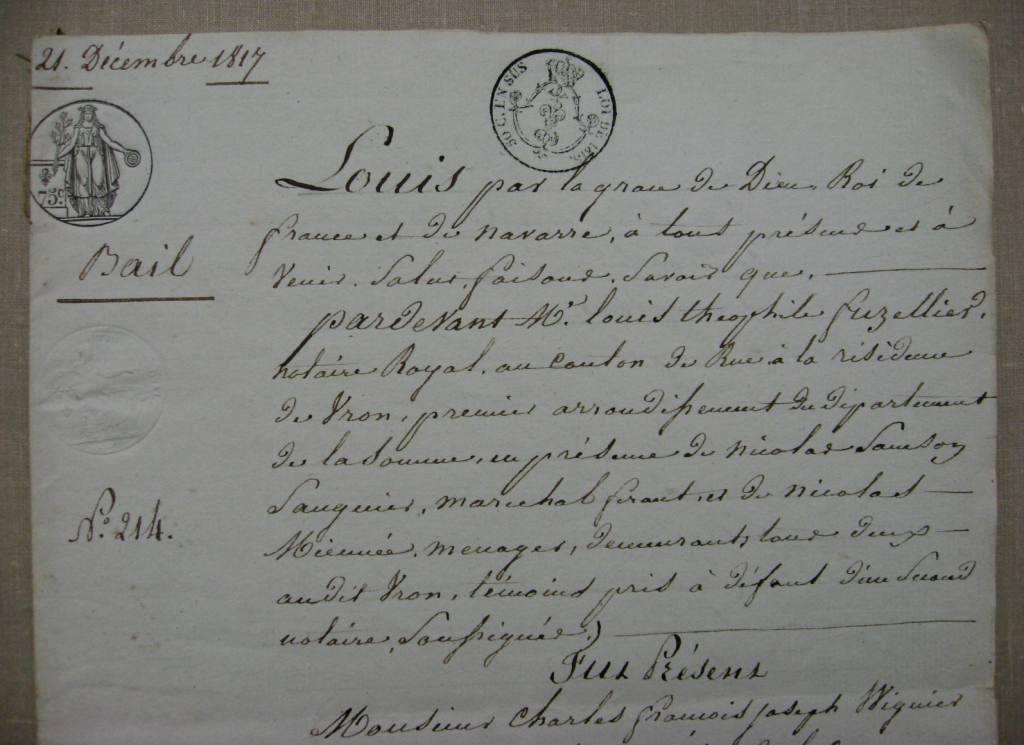 21. Décembre 1817
50 C. EN SUS
LOI DE 1816
75c
Bail
Nº. 214.
Louis par la grace de Dieu, Roi de
france et de navarre, à tous présens et à
venir. Salut. faisons. Savoir que,
pardevant Mr. louis théophile fuzellier,
notaire Royal, au canton de Rue à la résidence
de Vron, premier arrondissement du département
de la Somme, en présence de nicolas Samson
Sauguier, maréchal ferant, et de nicolas
Miennée, menager, demeurants tous deux
audit Vron, témoins pris à défaut d'un Second
notaire, Soussignés)
Fut Présent
Monsieur Charles françois joseph Wignier